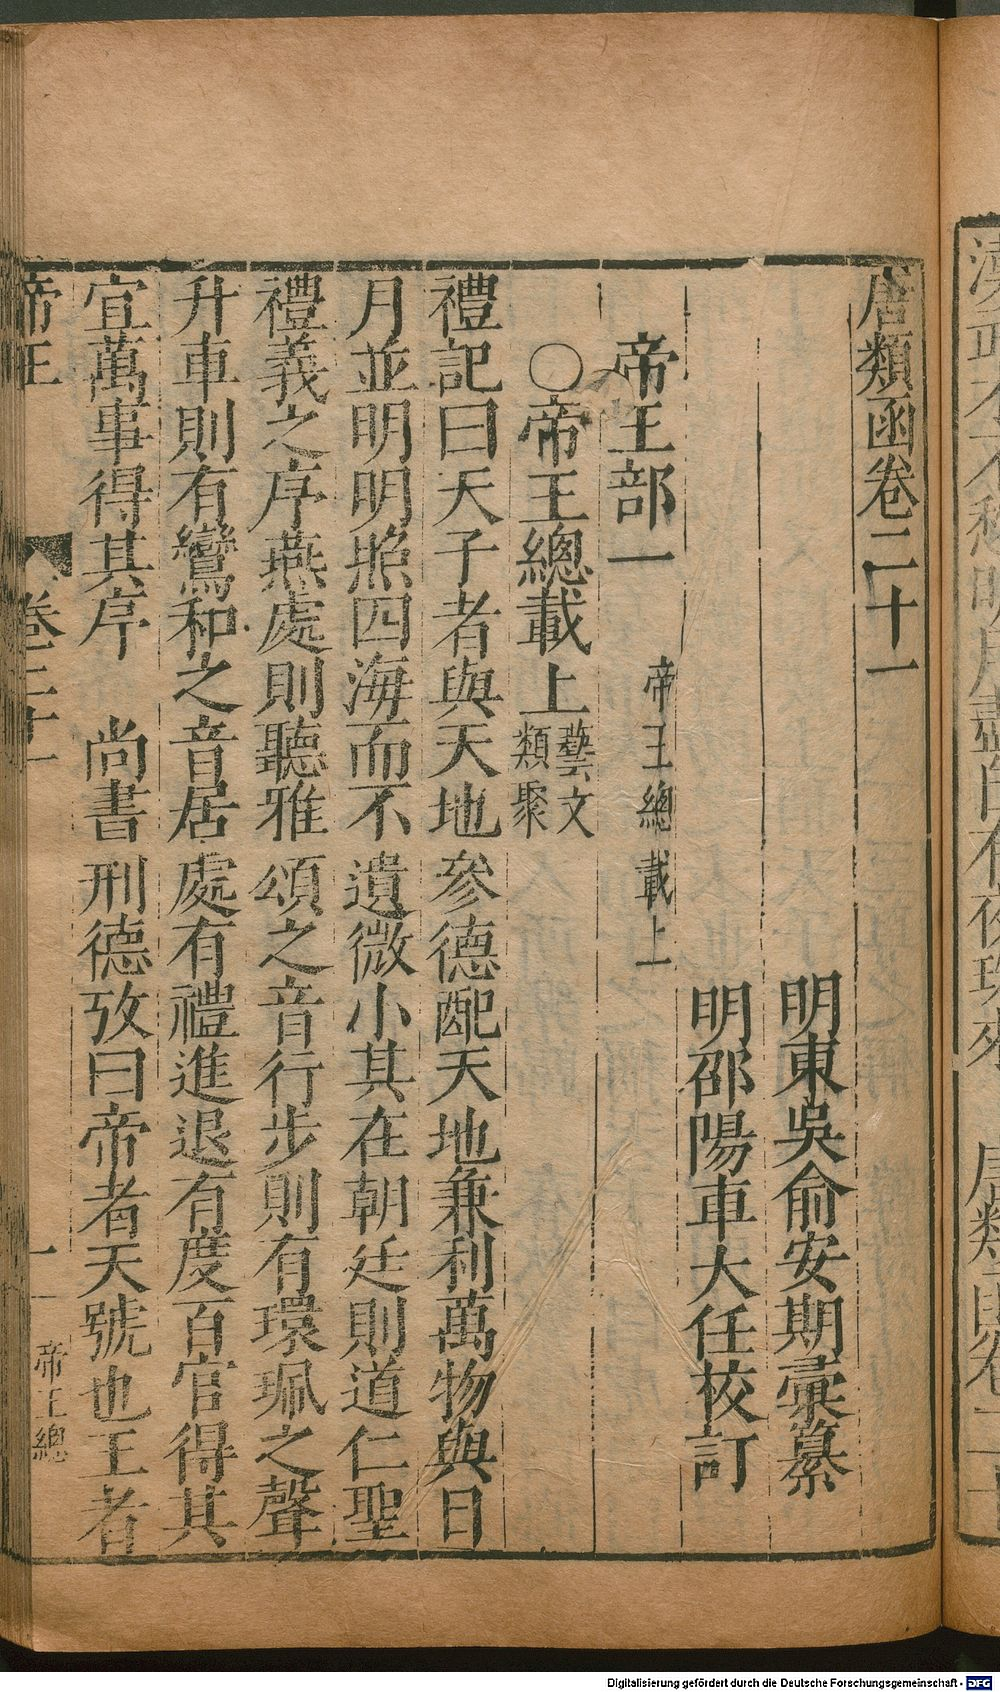 唐類函卷二十一
明東吳俞安期彙纂
明邵陽車大任校訂
帝王部一
帝王總載上
○帝王總載上藝文類聚
禮記曰天子者與天地參德配天地兼利萬物與日
月並明明照四海而不遺微小其在朝廷則道仁聖
禮義之序燕處則聽雅頌之音行步則有環珮之聲
升車則有鸞和之音居處有禮進退有度百官得其
宜萬事得其序 尚書刑德攷曰帝者天號也王者
帝王 卷二十一 一 帝王總
Digitalisierung gefördert durch die Deutsche Forschungsgemeinschaft - DFG